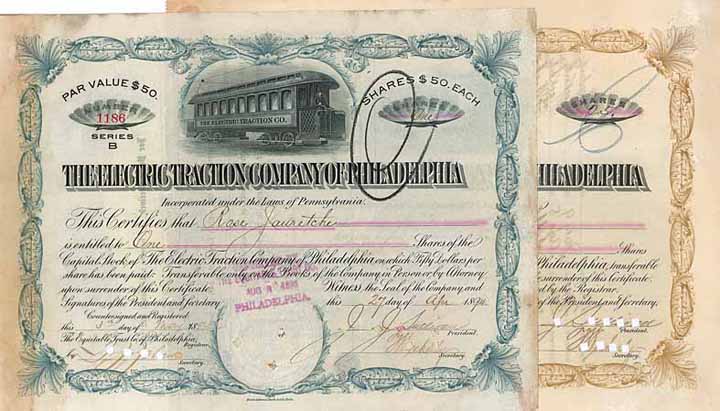 PAR VALUE $50.
SHARES $50. EACH
NUMBER
1186
SERIES
B
THE ELECTRIC TRACTION CO.
SHARES
One
THE ELECTRIC TRACTION COMPANY OF PHILADELPHIA
Incorporated under the Laws of Pennsylvania.
This Certifies that Rose Jauretche
is entitled to One Shares of the
Capital Stock of The Electric Traction Company of Philadelphia on which Fifty Dollars per
share has been paid. Transferable only on the Books of the Company in Person or by Attorney
upon surrender of this Certificate. Witness the Seal of the Company and
Signatures of the President and Secretary this 27 day of Apr 189
Countersigned and Registered
this 3rd day of May 18
The Equitable Trust Co of Philadelphia
Registrar. President.
Secretary. Secretary.
PHILADELPHIA.
SHARES
ILADELPHIA
Shares
Philadelphia, transferable
surrender of this Certificate,
by the Registrar
President and Secretary
President.
Secretary.